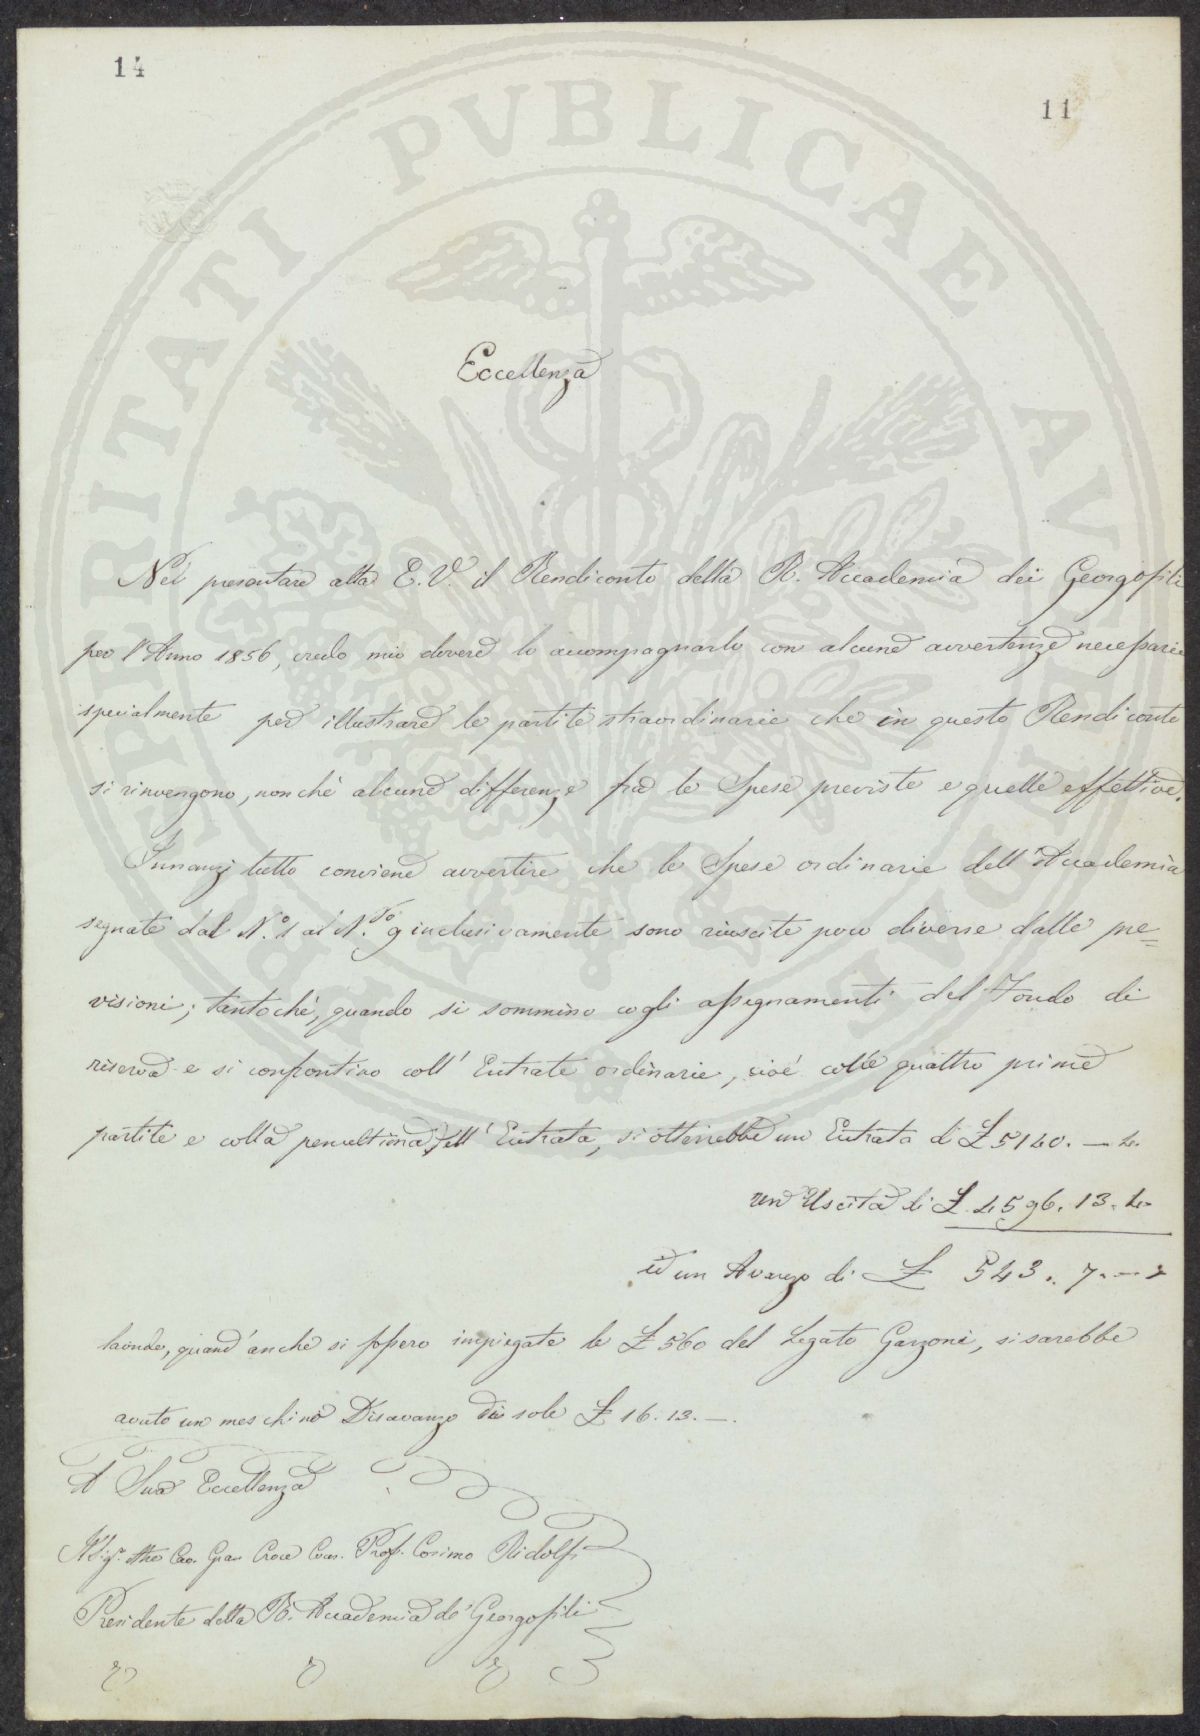 14
11
PROSPERITATI PVBLICAE AVGENDAE
Eccellenza
Nel presentare alla E. V. il Rendiconto della R. Accademia dei Georgofili
per l'Anno 1856, credo mio dovere lo accompagnarlo con alcune avvertenze necessarie
specialmente per illustrare le partite straordinarie che in questo Rendiconto
si rinvengono, nonchè alcune differenze fra le Spese previste e quelle effettive.
Innanzi tutto conviene avvertire che le Spese ordinarie dell'Accademia
segnate dal N.º 1 al N.º 9 inclusivamente sono riuscite poco diverse dalle pre=
visioni; tantochè, quando si sommino cogli assegnamenti del Fondo di
riserva e si confrontino coll'Entrate ordinarie, cioè colle quattro prime
partite e colla penultima dell'Entrata, si otterrebbe un Entrata di £ 5140. — 4.
un'Uscita di £ 4596. 13. 4.
ed un Avanzo di £ 543. 7. —
laonde, quand'anche si fossero impiegate le £ 560 del Legato Garzoni, si sarebbe
avuto un meschino Disavanzo di sole £ 16. 13. —.
A Sua Eccellenza
Il Sig.r Cav. Gran Croce Prof. Cosimo Ridolfi
Presidente della R. Accademia de' Georgofili